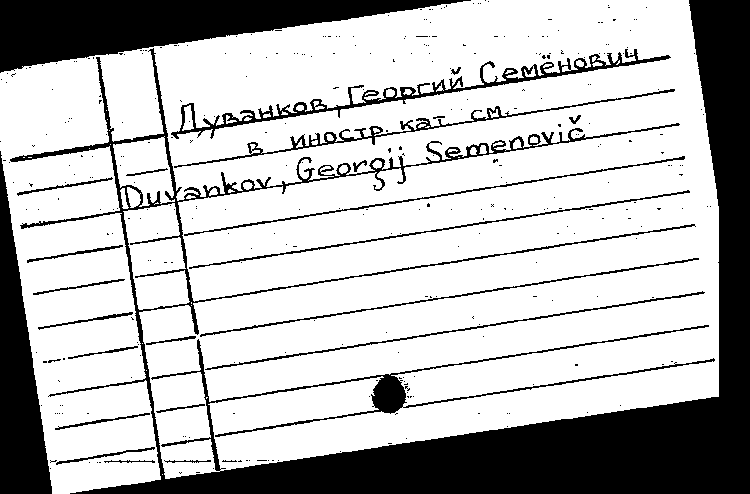 Дуванков, Георгий Семёнович
в иностр. кат см.
Duvankov, Georgij Semenovič